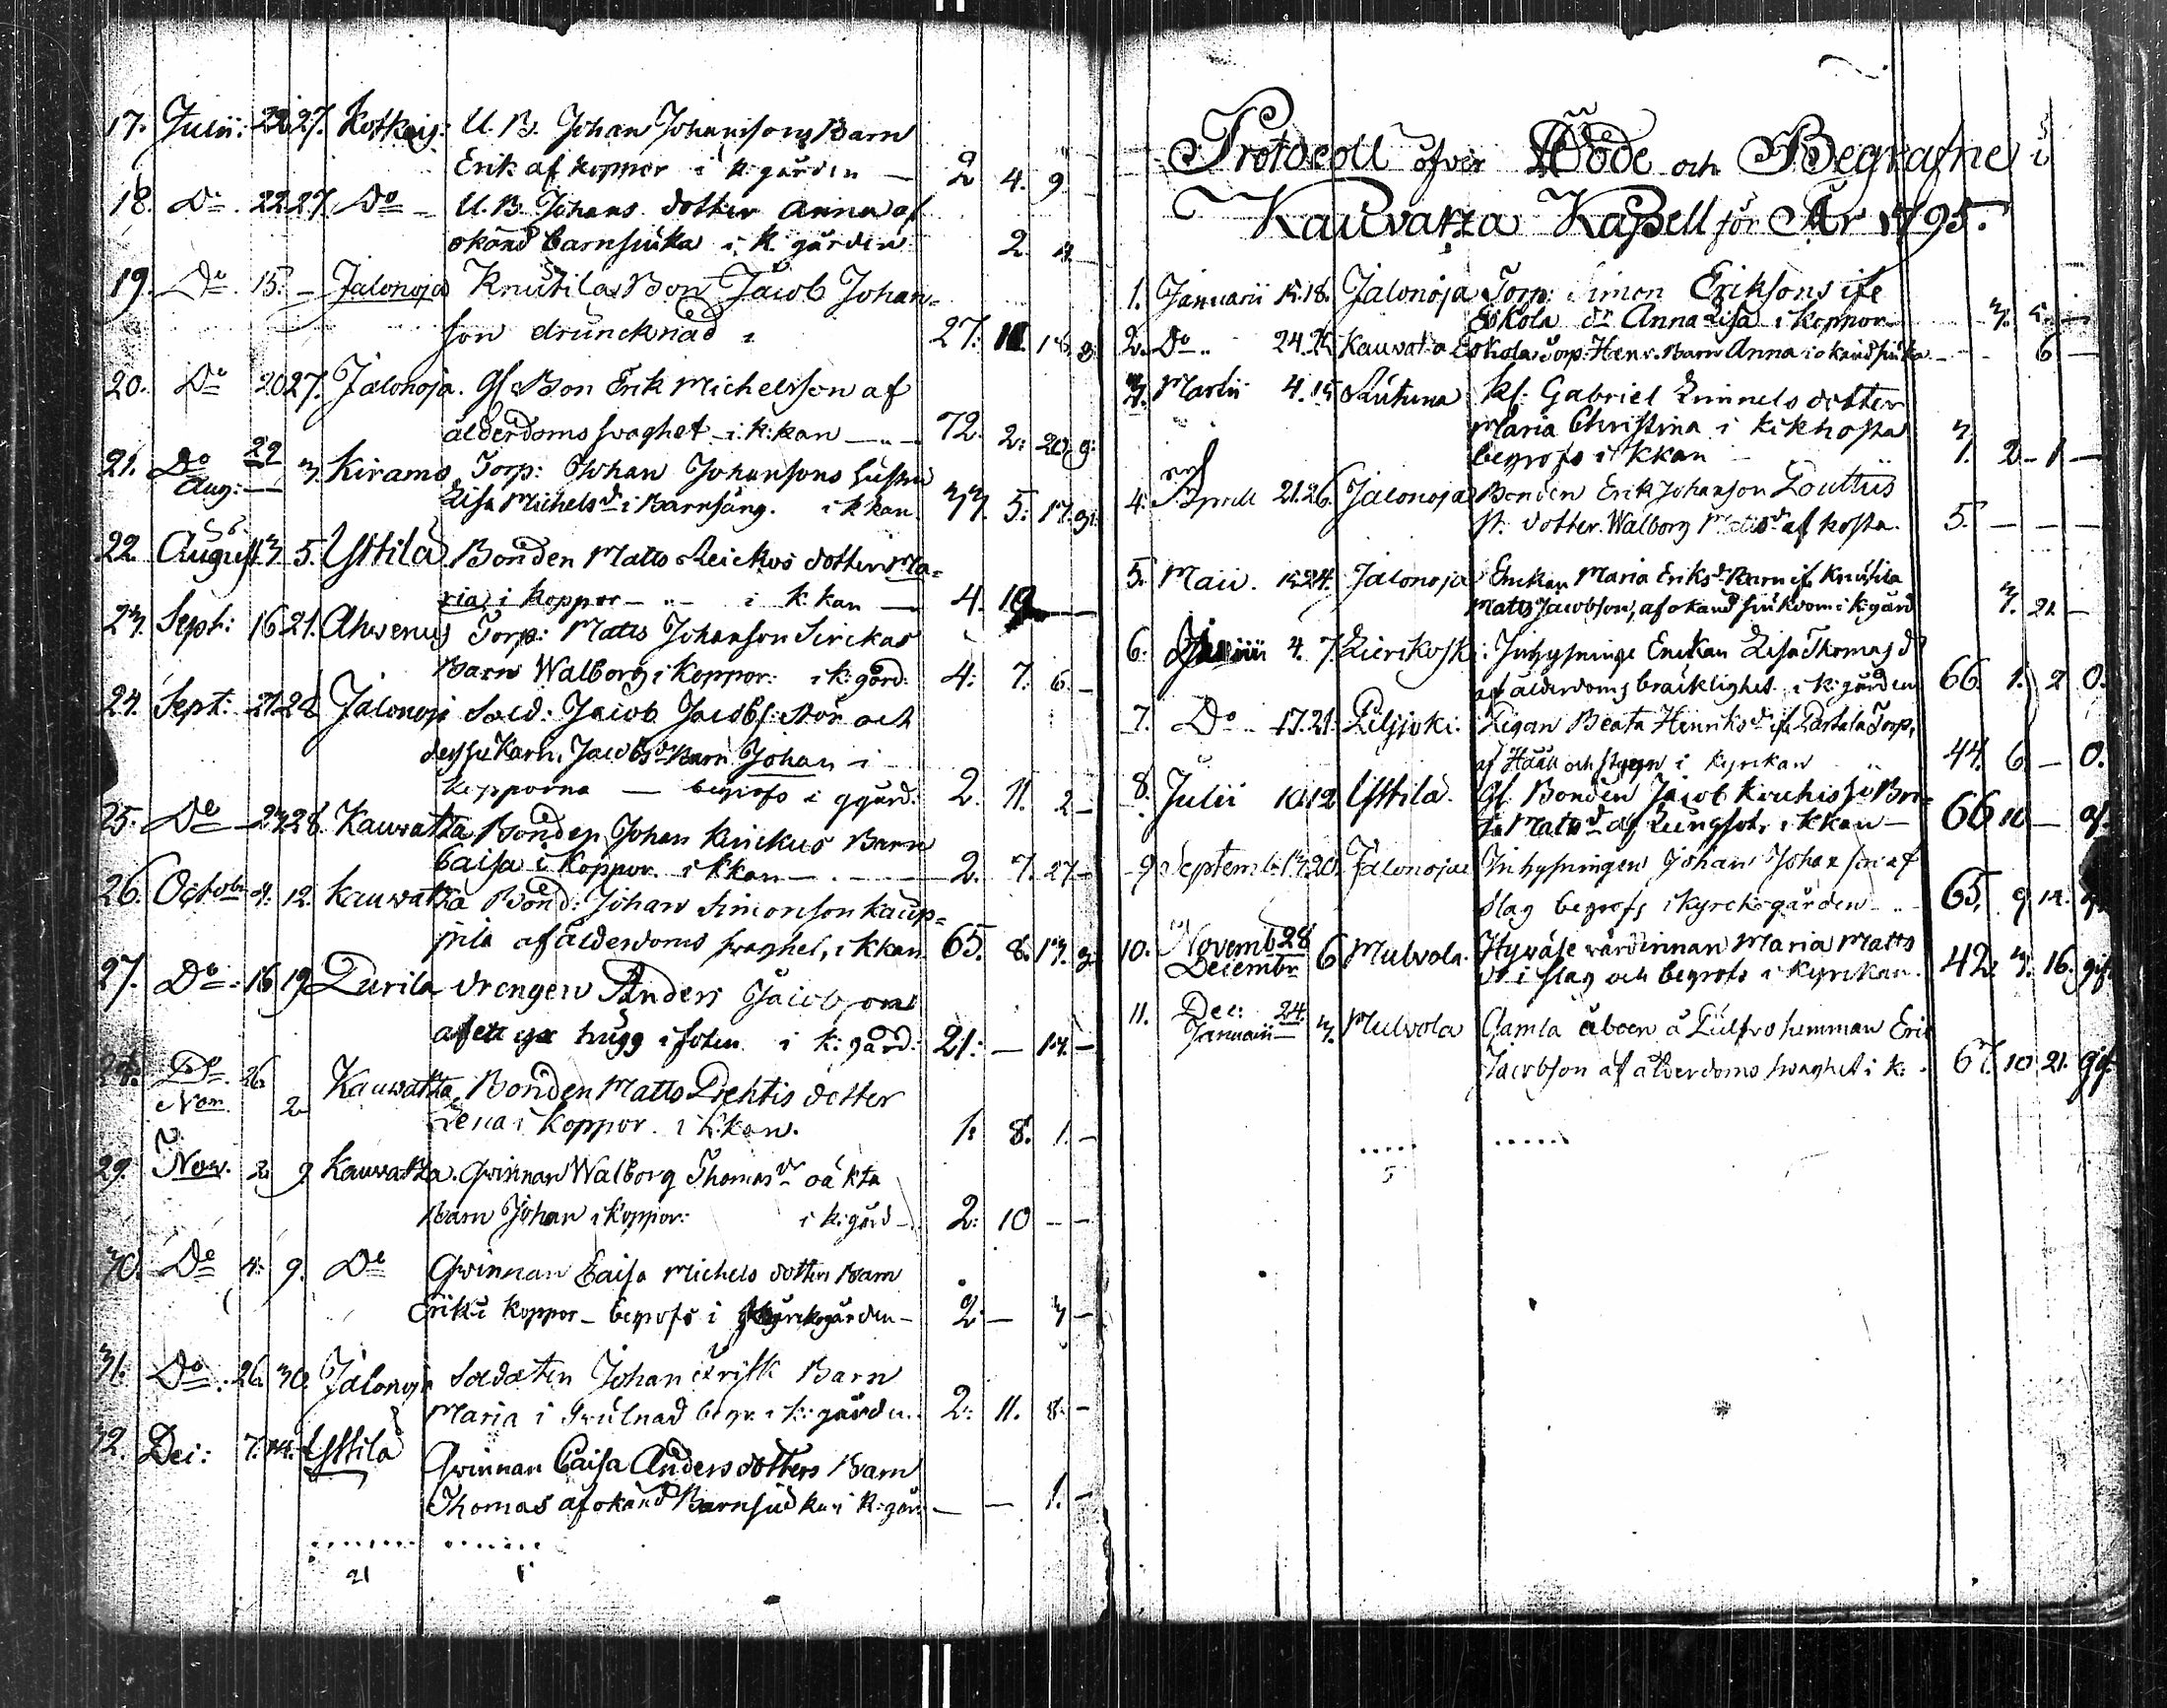 17. Julii: 22 27. Kotkaig: U. B. Johan Johansons Barn
Erik af koppor i k: gården — 2 4. 9. -
18. Do 22 27. Do U. B. Johans dotter Anna af
okänd barnsiuka i K gården 2. 4 -
19. Do 15. - Jalonoja Knutila Bon Jacob Johan-
son druncknad 27. 10. 18. g.
20. Do 20 27. Jalonoja. Gl. Bon Erik Michelsson af
ålderdoms svaghet i k: kan 72. 2: 20. g:
21. Do 22 Aug: 3. Kiramo Torp: Johan Johansons hustru
Lisa Michelsdr i Barnsäng. i k kan. 33. 5: 17. g.
22. August 3. 5. Yttilä Bonden Matts Leickos dotter Ma-
ria i koppor - i k: kan — 4. 10 —
23. Sept: 16 21. Ahvenus Torp: Matts Johanson Sirckas
Barn Walborg i koppor: i k: gård: 4: 7. 6. -
24. Sept: 21 28 Jalonoj Sold: Jacob Jacobs:
Barn Johan i
kopporna — begrofs i gård. 2. 11. 2 -
25. Do 23 28. Kauvatsa Bonden Johan Barn
Caisa i koppor. i k kan — 2. 7. 27 -
26. Octobr 4. 12. Kauvatsa Bond: Johan Simonson Kaup-
pila af ålderdoms svaghet, i k kan. 65. 8. 13. g.
27. Do 16 19 Purila drengen Anders Jacobson
af ett yx hugg i foten i k: gård: 21: — 14. -
28. Do 26. Nov 2. Kauvatsa Bonden Matts Prehtis dotter
Lena i koppor. i k: kan. 1: 8. 1. -
29. Nov. 2. 9. Kauvatsa. Qvinnan Walborg Thomasdr oäkta
Barn Johan i koppor: i k: gård - 2: 10 - -
30. Do 4: 9. Do Qvinnan Caisa Michels dotters Barn
Erik i koppor - begrofs i kyrkogården - 2 — 3 -
31. Do 26. 30. Jalonoja Soldaten Johan Frisk Barn
Maria i begr. i k: gården. 2: 11. 8. -
32. Dec: 7. 14. Yttilä Qvinnan Caisa Anders dotters Barn
Thomas af okänd Barnsiuka i k: går: — — 1. -
21
Protocoll öfver Döde och Begrafne i
Kauvatsa Kapell för År 1795.
1. Januarii 15. 18. Jalonoja Torp: Simon Eriksons ifr
Eskola dr Anna Lisa i koppor 3. 5. -
2. Do 24. 25. Kauvatsa Eskola Torp. Henr. Barn Anna i okänd siuka - - 6 -
3. Martii 4. 15 Kl: Gabriel Limnels dotter
Maria Christina i kikhosta
begrofs i k kan 1. 2 - 1 -
4. Aprill 21. 26. Jalonoja Bonden Erik Johanson Louttus
st: dotter Walborg Mattsdr af hosta. 5. — — —
5. Maii. 15. 24. Jalonoja Enckan Maria Eriksdr Barn ifr Knutila
Matts Jacobson, af okänd siukdom i k: gård 3. 21. -
6. Junii 4. 7. Lierikosk: Inhysninge Enckan Lisa Thomasdr
af ålderdoms bräcklighet i k: gården 66. 1. 2 0.
7. Do 17. 21. Piilijoki. Pigan Beata Henriksdr ifr Torp,
af Håll och styng i kyrckan 44. 6 - 0.
8. Julii 10. 12 Yttilä. Gl. Bonden Jacob Bri-
ta Mattsdr af Lungsot, i k kan — 66 10 — g.
9 Septemb: 13. 20. Jalonoja Inhysningen Johan Johanson af
Slag begrofs i kyrckogården - 65. 9 14. g.
10. Novemb: 28 Decembr 6 Mulvola. Hyväse värdinnan Maria Matts
dr i slag och begrofs i kyrckan. 42. 3. 16. gif.
11. Dec: 24. Januarii 3. Mulvola Gamla åboen å hemman Eric
Jacobson af ålderdoms svaghet i k: 67. 10 21. gif.
5